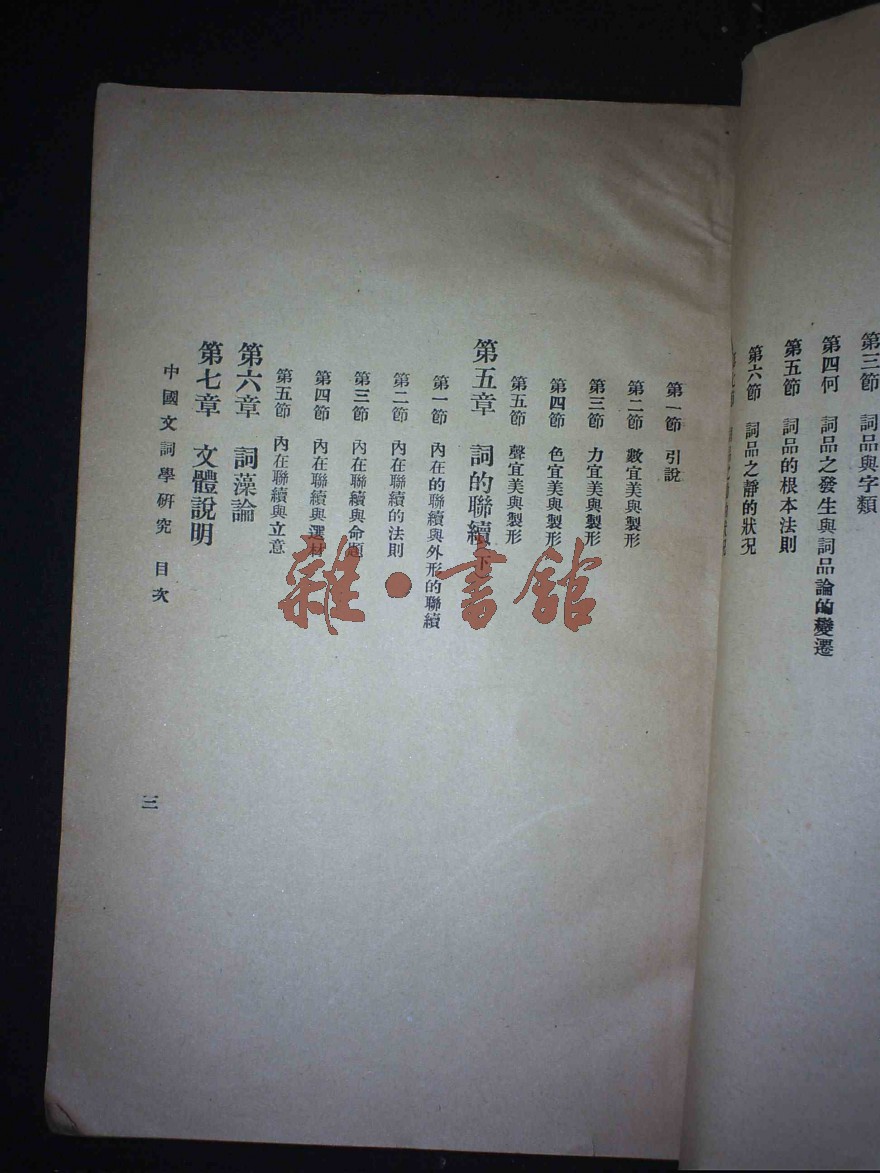 第三節　詞品與字類
第四何　詞品之發生與詞品論的變遷
第五節　詞品的根本法則
第六節　詞品之靜的狀況
第一節　引說
第二節　數宜美與製形
第三節　力宜美與製形
第四節　色宜美與製形
第五節　聲宜美與製形
第五章　詞的聯續 下
第一節　內在的聯續與外形的聯續
第二節　內在聯續的法則
第三節　內在聯續與命題
第四節　內在聯續與選材
第五節　內在聯續與立意
第六章　詞藻論
第七章　文體說明
中國文詞學研究　目次
三
雜·書館